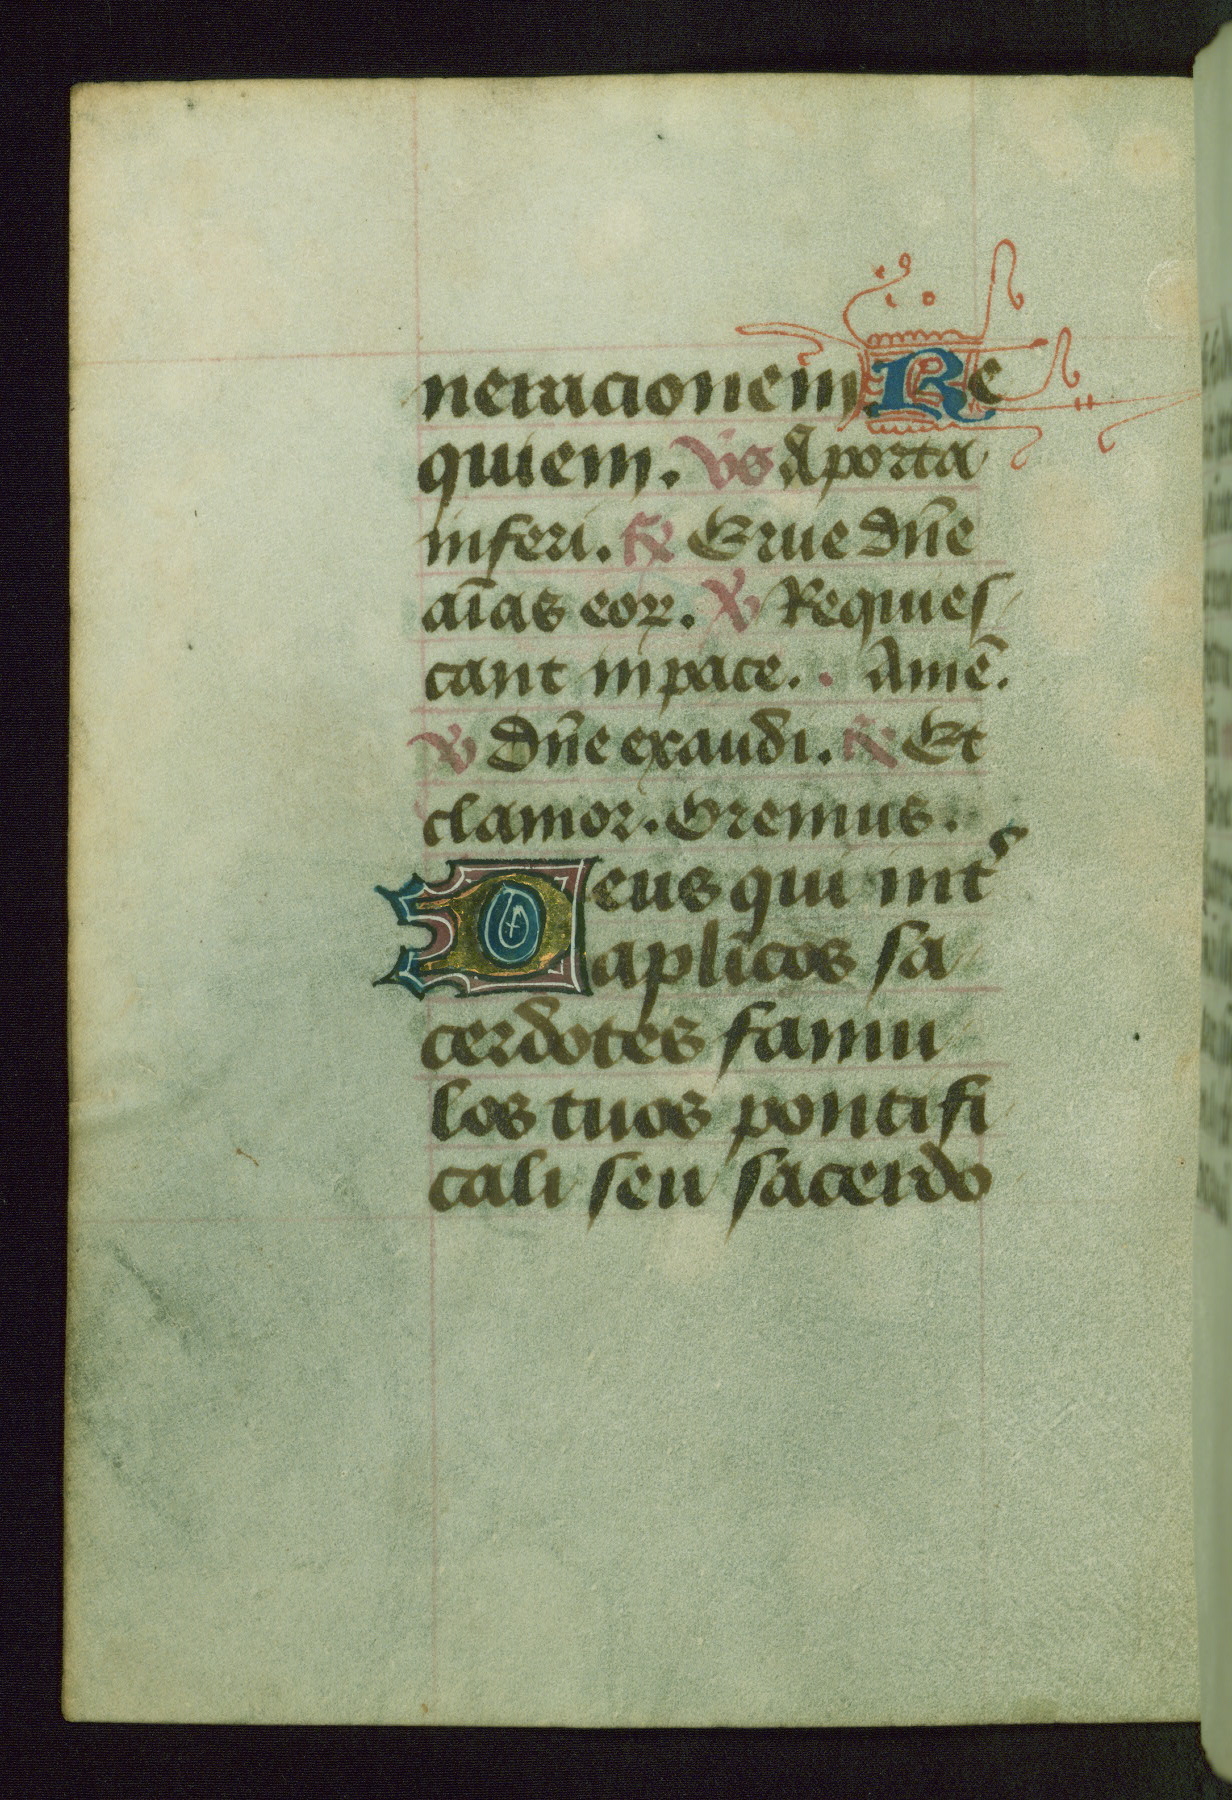 neracionem Re
quiem. v̄s A porta
inferi. ℟ Erue dn̄e
aīas eoꝝ. ℣ Requies
cant in pace. . Amē.
℣ Dn̄e exaudi. ℟ Et
clamor. Oremus.
Deus qui int᷒
aplīcos sa
cerdotes famu
los tuos pontifi
cali seu sacerdo